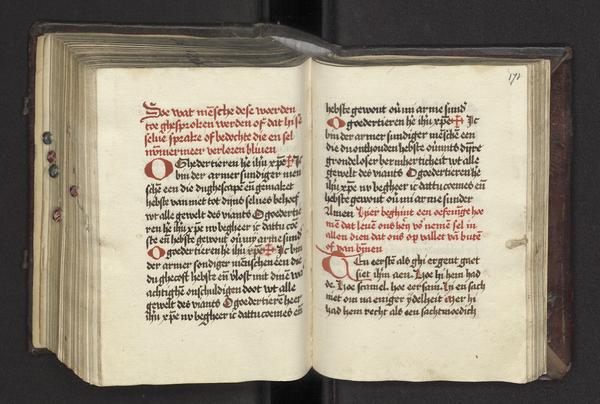 Soe wat mēsche dese woerden
toe ghesproken werden of dat hi se
selue sprake of bedochte die en sel
nēmermeer verloren bliuen
O Ghedertieren he ihū xp̄e Ic
bin der armer sundiger men
schē een die du ghescapē eñ gemaket
hebste van niet tot dijns selues behoef
wt alle gewelt des viants O goedertie
ren he ihū xp̄e nv begheer ic dattu coe
ste eñ hebste gewout oū mȳ arme sund
O goedertieren he ihū xp̄e Ic bin
der armer sondiger menschen een die
du ghecoft hebste eñ v'lost mit dinē
achtighē onschuldigen doot wt alle
gewelt des viants O goedertierē heer
ihū xp̄e nv begheer ic dattu coemes eñ
171
hebste gewout oū mi arme sund
O goedertieren he ihū xp̄e Ic
bin der armer sundiger mēschē een
die du onthouden hebste oūmits dijnre
grondeloser bermherticheit wt alle
gewelt des viants O goedertierē he
ihū xp̄e nv begheer ic dattu coemes eñ
hebste gewout oū mi arme sunder
Amen Hier beghint een oefeninge hoe
men dat leuē ons herē v'nemē sel in
allen dien dat ons op vallet vā butē
of van bīnen
En eerst als ghi ergent gaet
siet ihm aen. Hoe hi hem had
de. Hoe scamel. hoe eersam. In en sach
niet om na eniger ydelheit Mer hi
had hem recht als een sachtmoedich